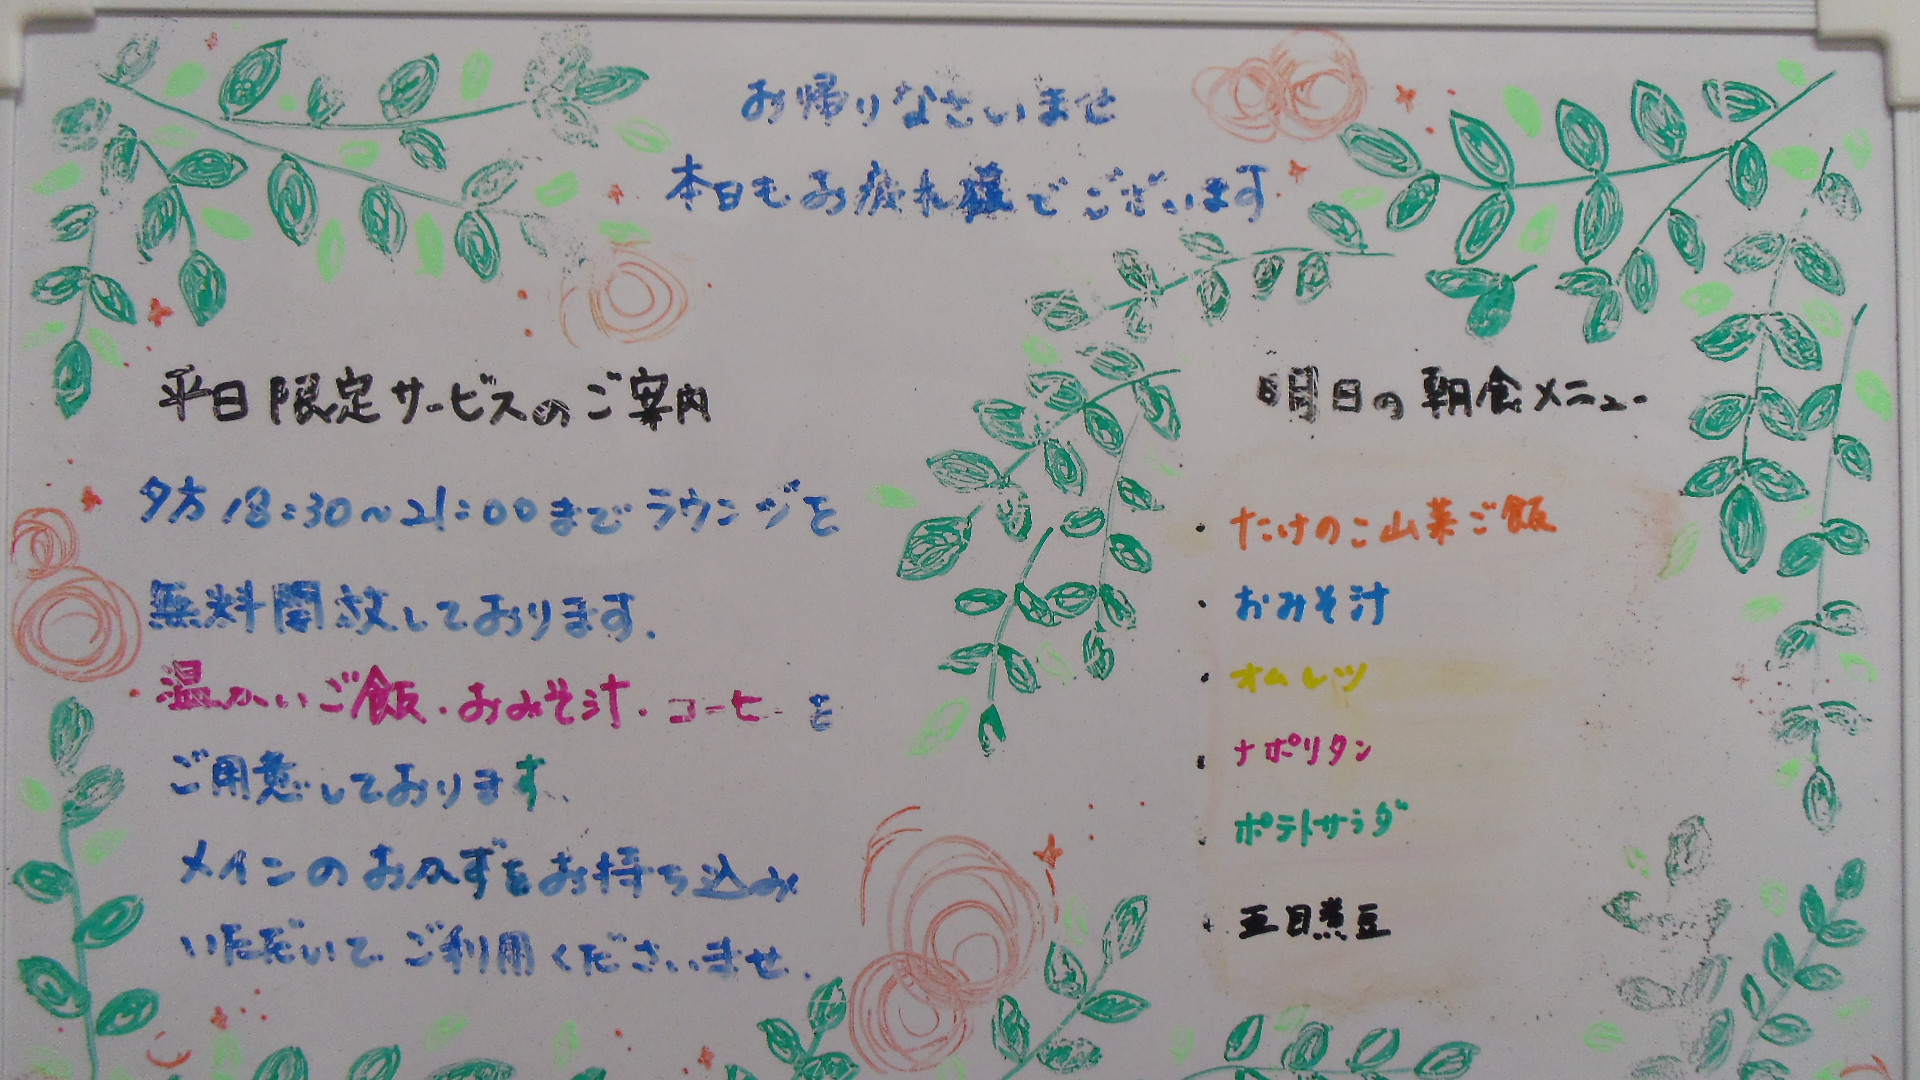 お帰りなさいませ
本日もお疲れ様でございます
平日限定サービスのご案内
夕方18:30〜21:00までラウンジを
無料開放しております.
温かいご飯・おみそ汁・コーヒーを
ご用意しております.
メインのおかずをお持ち込み
いただいてご利用くださいませ.
明日の朝食メニュー
・たけのこ山菜ご飯
・おみそ汁
・オムレツ
・ナポリタン
・ポテトサラダ
・五目煮豆